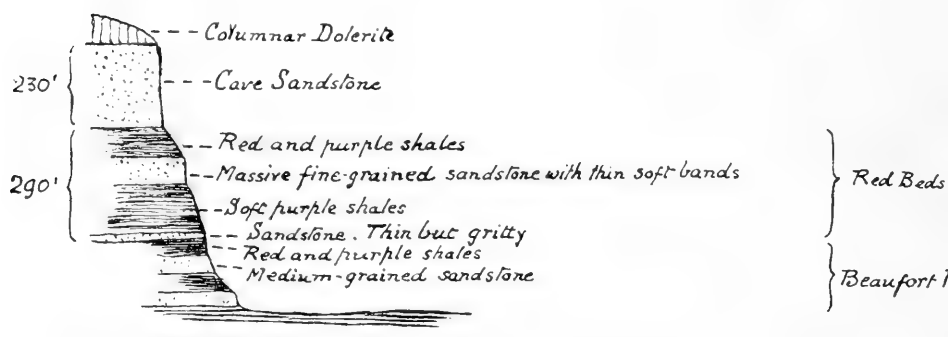 Columnar Dolerite
230' Cave Sandstone
Red and purple shales
290' Massive fine-grained sandstone with thin soft bands Red Beds
Soft purple shales
Sandstone. Thin but gritty
Red and purple shales
Medium-grained sandstone Beaufort